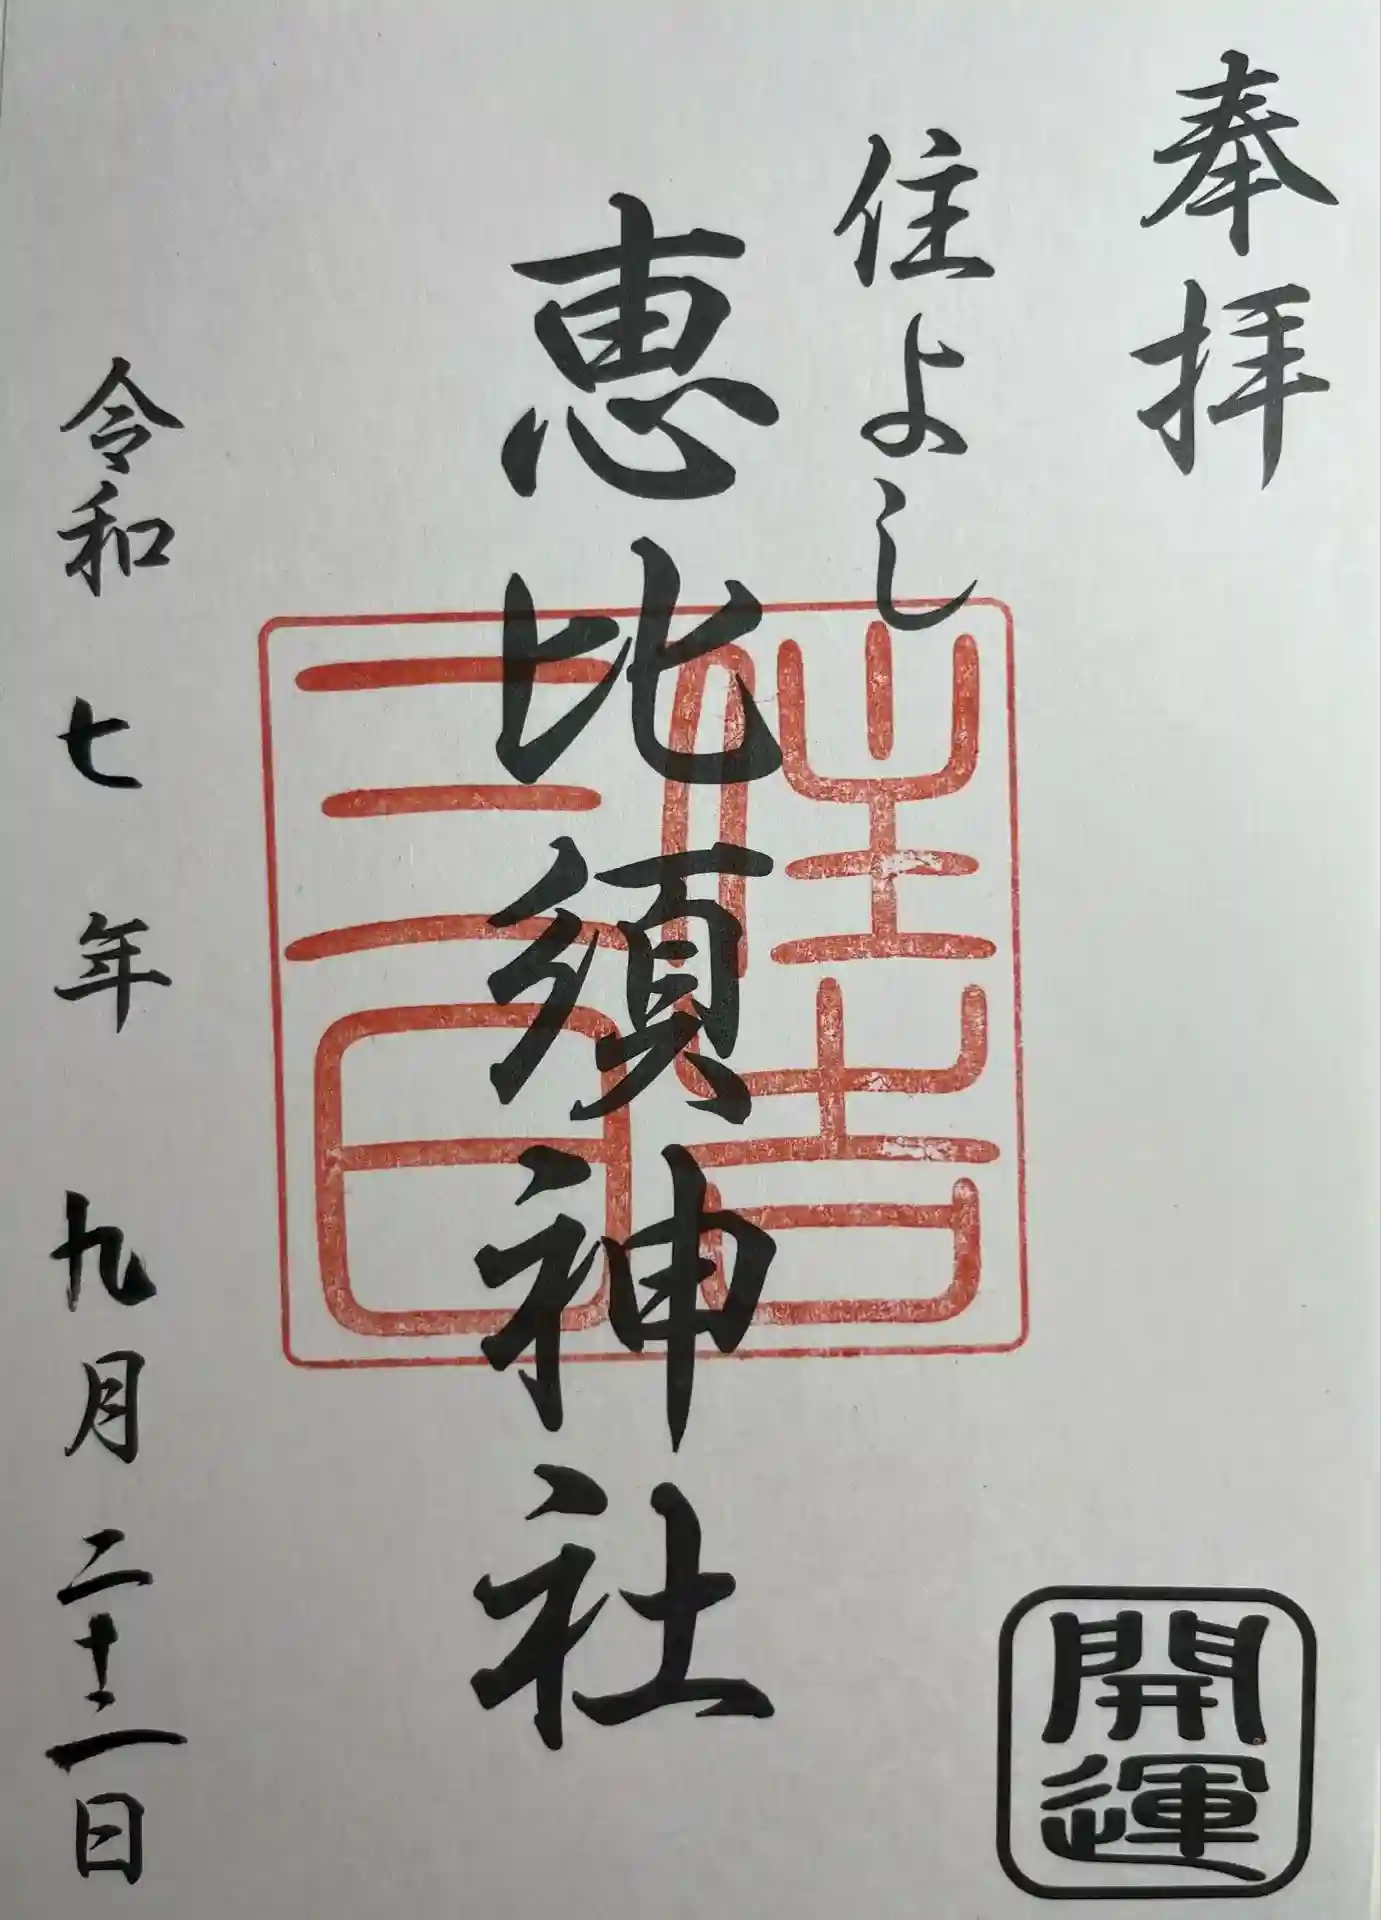 奉拝
住よし
恵比須神社
住吉
三日
令和七年九月二十二日
開運